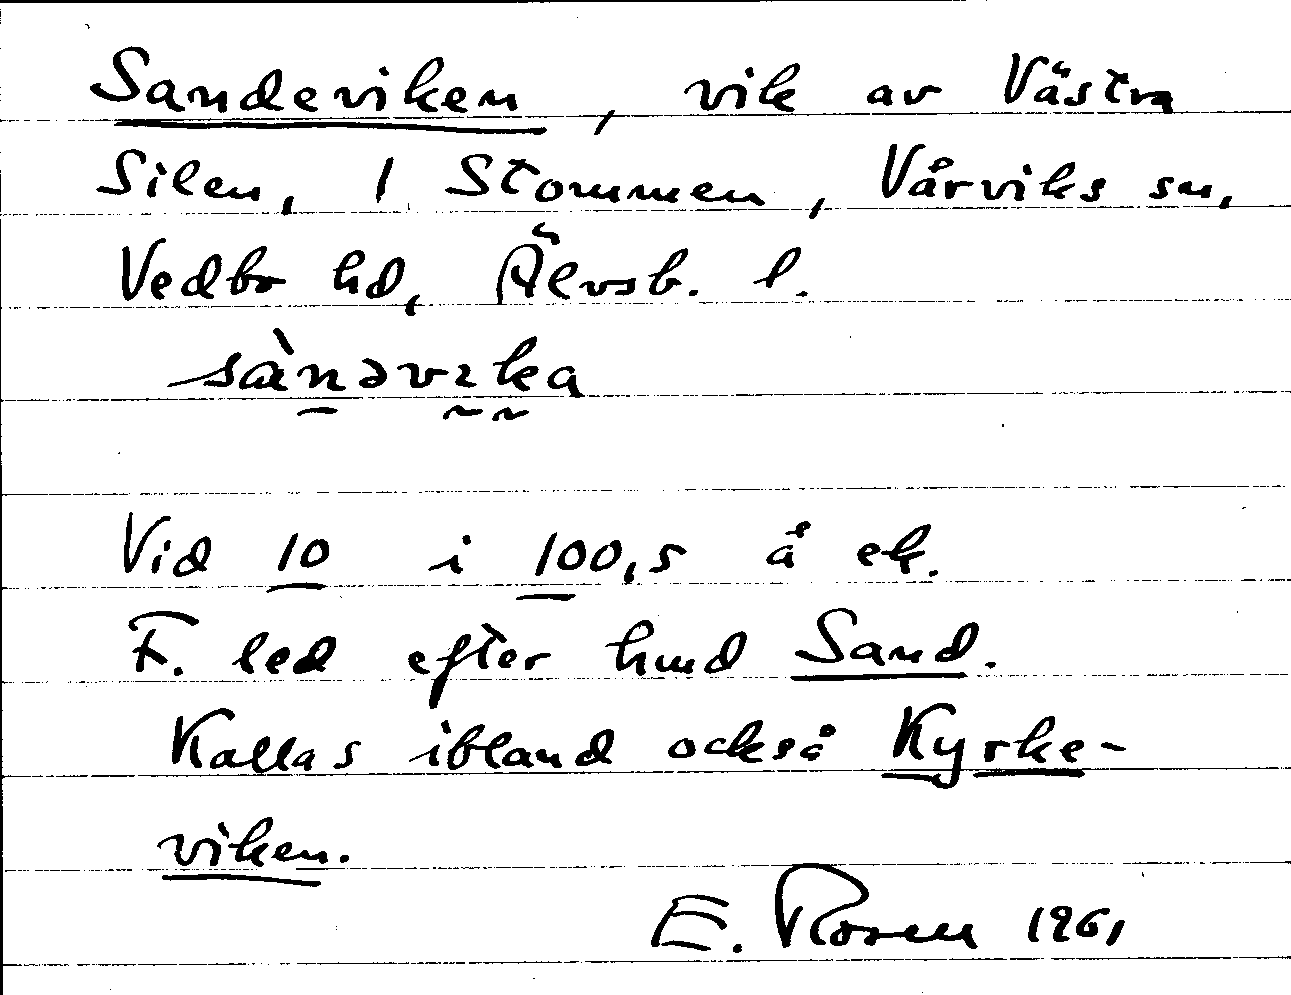 Sandeviken, vik av Västra
Silen, 1 Stommen, Vårviks sn,
Vedbo hd, Älvsb. l.
sànəvıka
Vid 10 i 100,5 å ek.
F. led efter hmd Sand.
Kallas ibland också Kyrke-
viken.
E. Rosen 1961